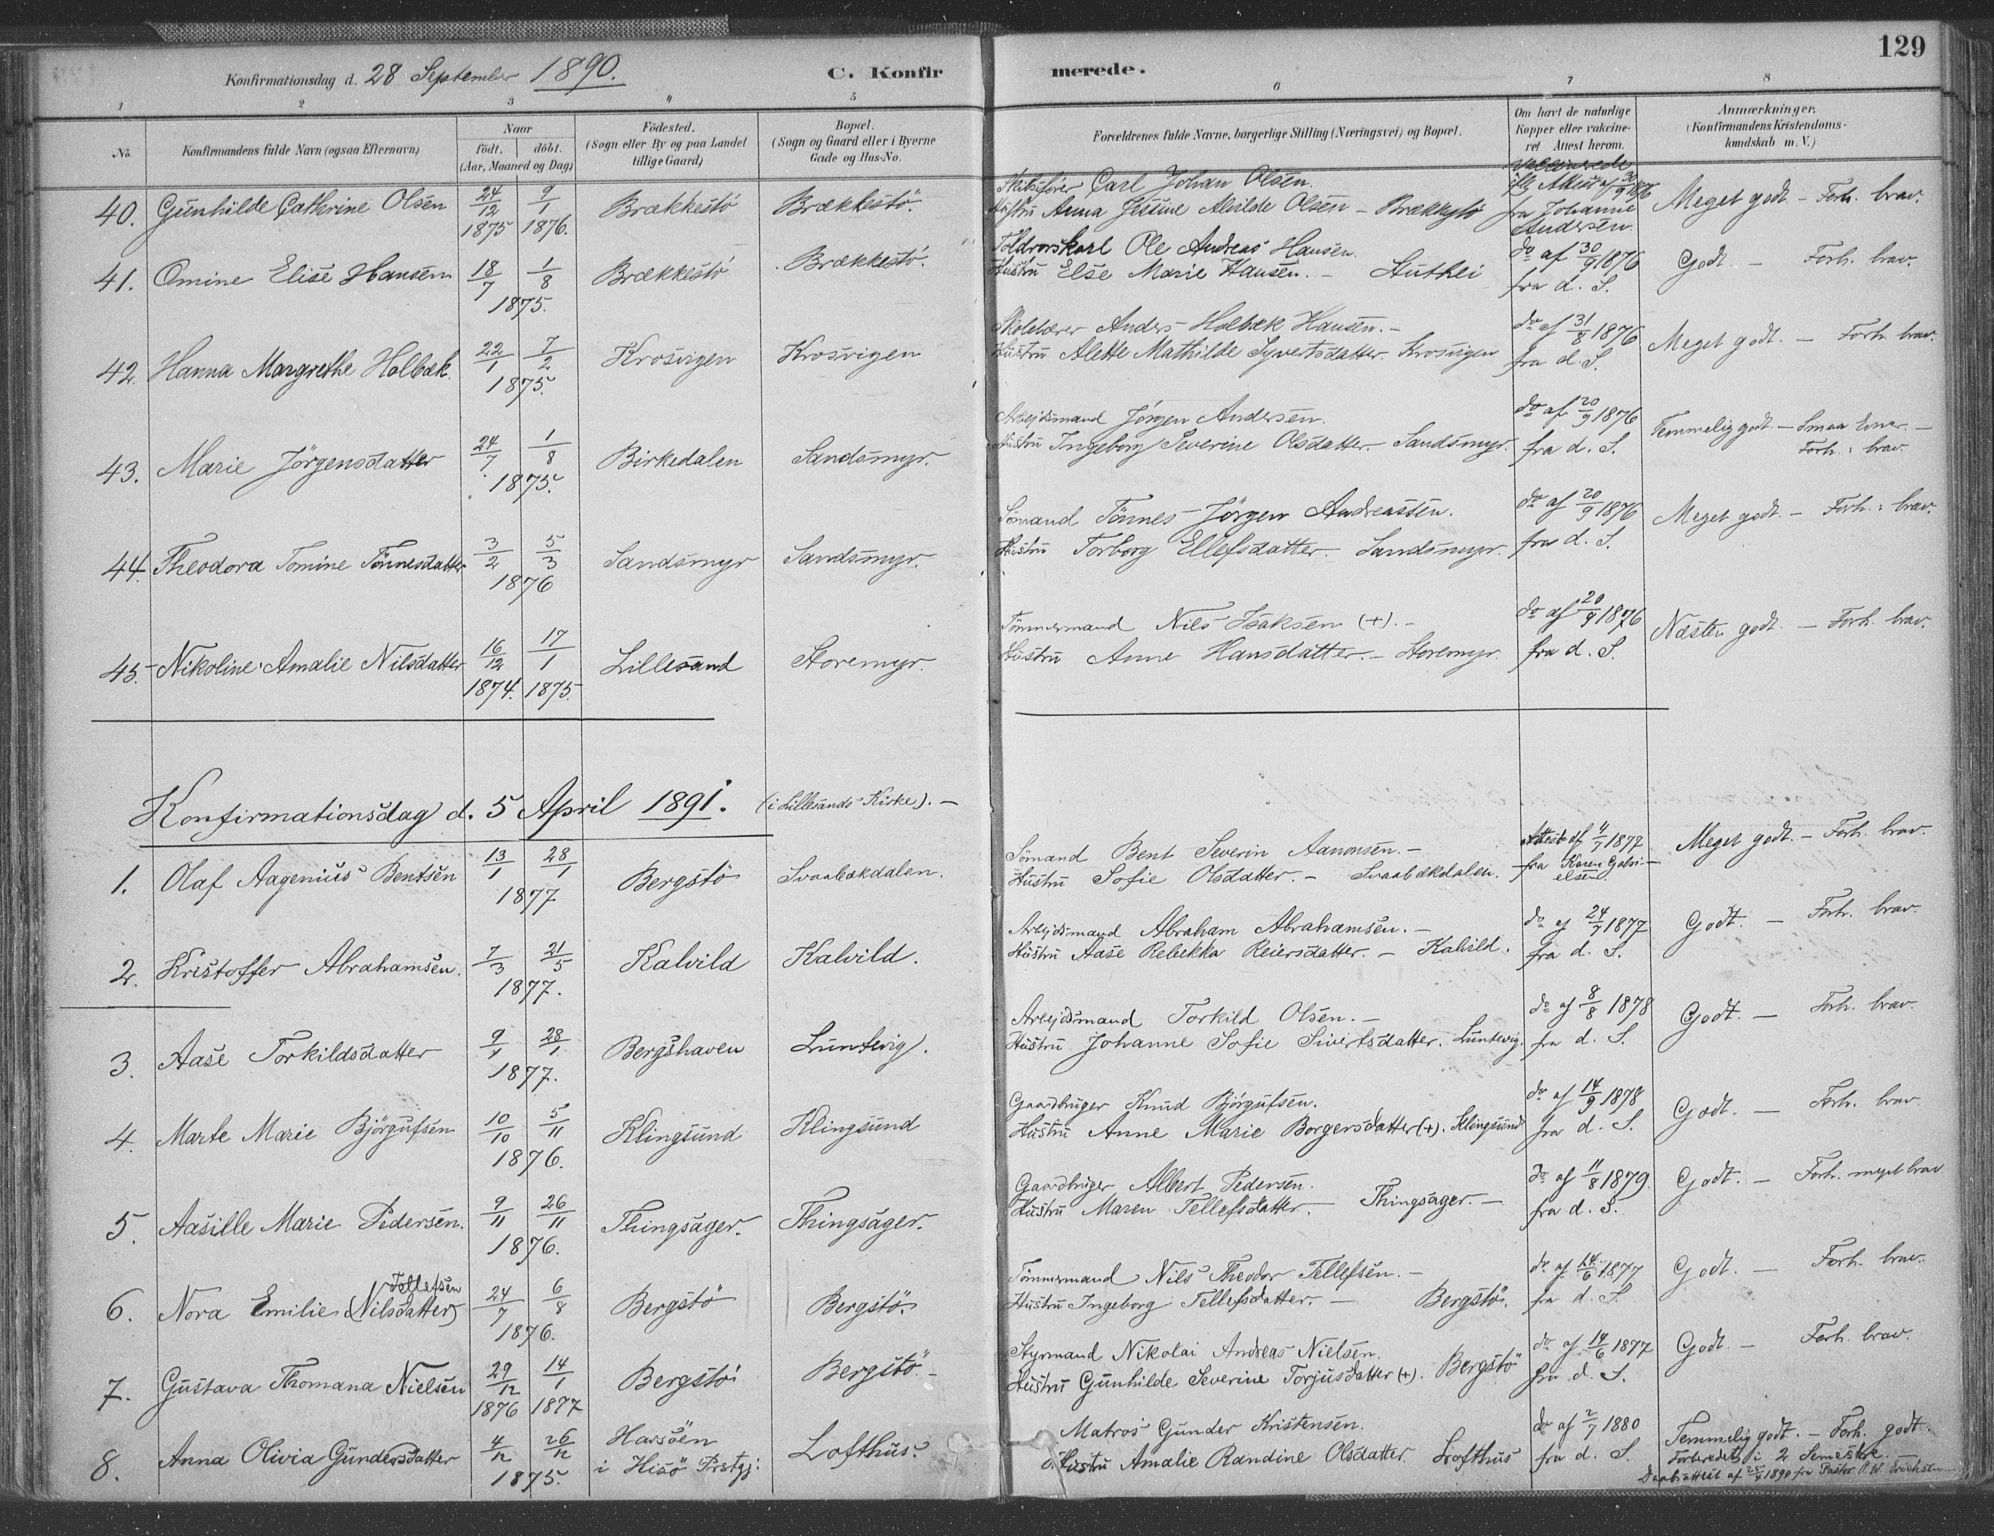 129
Konfirmationsdag d. 28 September 1890.
C. Konfirmerede.
1 2 3 4 5 6 7 8
No.
Konfirmandens fulde Navn (ogsaa Efternavn)
Naar født. døbt. (Aar, Maaned og Dag)
Fødested. (Sogn eller By og paa Landet tillige Gaard)
Bopæl. (Sogn og Gaard eller i Byerne Gade og Hus-No.
Forældrenes fulde Navne, borgerlige Stilling (Næringsvei) og Bopæl.
Om havt de naturlige Kopper eller vakcineret Attest herom.
Anmærkninger. (Konfirmandens Kristendomskundskab m. V.)
40. Gunhilde Cathrine Olsen 24/12 1875 9/1 1876. Brækkestö Brækkestö. Carl Johan Olsen.
Hustru Anna Jesine Alvilde Olsen – Brækkestö Attest af 30/9 1876 fra Johanne Andersen. Meget godt – Forh. brav.
41. Omine Elise Hansen 18/7 1/8 1875. Brækkestö Brækkestö. Ole Andreas Hansen.
Hustru Else Marie Hansen. – do af 30/9 1876 fra d. S. Godt. – Forh. brav.
42. Hanna Margrethe Holbæk. 22/1 7/2 1875. Krosvigen Krosvigen Skolelærer Anders Holbæk Hansen. –
Hustru Alette Mathilde Syvertsdatter. Krosvigen do af 31/8 1876 fra d. S. Meget godt. – Forh. brav.
43. Marie Jörgensdatter 24/7 1/8 1875. Birkedalen Sandsmyr. Arbejdsmand Jørgen Andersen.
Hustru Ingeborg Severine Olsdatter – Sandsmyr. do af 20/9 1876 fra d. S. Temmelig godt – Smaa Evner – Forh: brav.
44. Theodora Tomine Tönnesdatter 3/2 5/3 1876 Sandsmyr Sandsmyr. Sömand Tönnes Jörgen Andreassen.
Hustru Torborg Ellefsdatter – Sandsmyr. do af 20/9 1876 fra d. S. Meget godt. – Forh: brav.
45. Nikoline Amalie Nilsdatter 16/12 1874. 17/1 1875. Lillesand Storemyr. Tömmermand Nils Isaksen (+). –
Hustru Anne Hansdatter. – Storemyr. do af 20/9 1876 fra d. S. Næsten godt. – Forh. brav.
Konfirmationsdag d. 5 April 1891. (i Lillesands Kirke). –
1. Olaf Aagenius Bentsen 13/1 28/1 1877 Bergstö Svaabækdalen. Sömand Bent Severin Aanonsen. –
Hustru Sofie Olsdatter. – Svaabækdalen. Attest af 4/7 1877 fra Karen Gabrielsen. Meget godt. – Forh. brav.
2. Kristoffer Abrahamsen. 7/3 21/5 1877. Kalvild Kalvild. Arbejdsmand Abraham Abrahamsen. –
Hustru Aase Rebekka Reiersdatter. – Kalvild. do af 24/9 1877 fra d. S. Godt. – Forh. brav.
3. Aase Torkildsdatter 9/1 28/1 1877. Bergshaven Luntevig. Arbejdsmand Torkild Olsen. –
Hustru Johanne Sofie Sivertsdatter. Luntevig. do af 8/8 1878 fra d. S. Godt. – Forh. brav.
4. Marte Marie Björgufsen 10/10 5/11 1876. Klingsund Klingsund Gaardbruger Knud Björgufsen.
Hustru Anne Marie Borgersdatter (+). Klingsund do af 14/9 1878 fra d. S. Godt. – Forh. brav.
5. Aasille Marie Pedersen. 9/11 26/11 1876. Thingsager. Thingsager. Gaardbruger Albert Pedersen.
Hustru Maren Tellefsdatter. – Thingsager. – do af 11/8 1879. fra d. S. Godt. – Forh. meget brav
6. Nora Emilie (Nilsdatter) Tellefsen 24/7 6/8 1876. Bergstö Bergstö. Tömmermand Nils Theodor Tellefsen. –
Hustru Ingeborg Tellefsdatter. – Bergstö. do af 14/6 1877 fra d. S. Godt. – Forh. brav.
7. Gustava Thomana Nielsen 29/12 1876 14/1 1877 Bergstö Bergstö. – Styrmand Nikolai Andreas Nielsen.
Hustru Gunhilde Severine Torjusdatter (+). Bergstö do af 14/6 1877 fra d. S. Godt. – Forh. brav.
8. Anna Olivia Gundersdatter 4/12 26/12 1875. Havsöen i Hisö Prstgj: Lofthus. Matros Gunder Kristensen.
Hustru Amalie Randine Olsdatter Lofthus do af 2/7 1880 fra d. S. Temmelig godt. – Forh. godt.
Forberedet i 2 Semestre. –
Daabsattest af 25/9 1890 fra Pastor